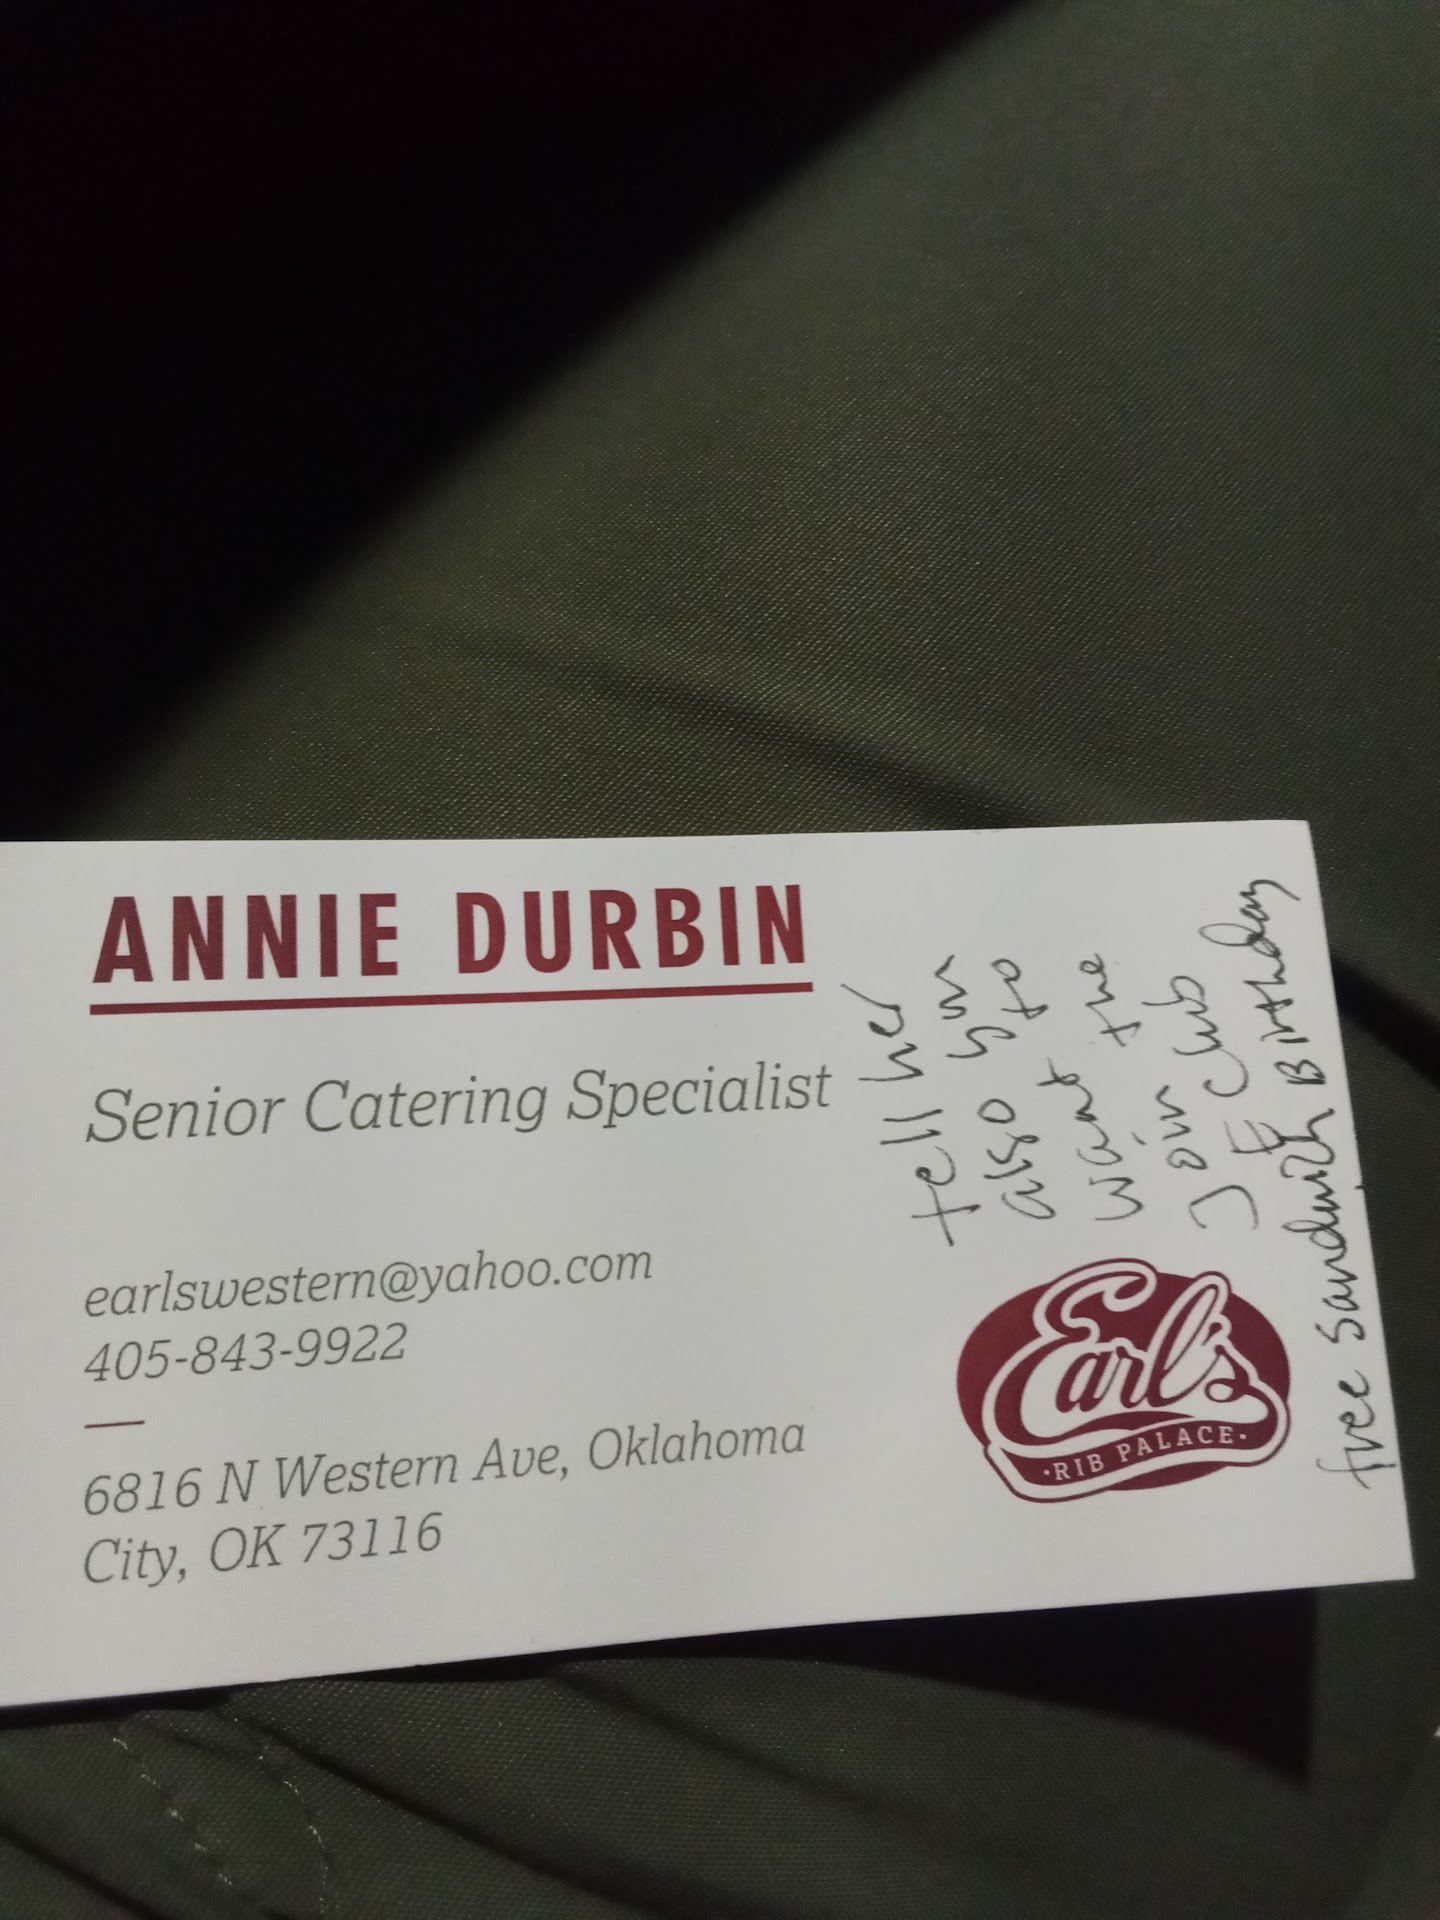 ANNIE DURBIN
Senior Catering Specialist
earlswestern@yahoo.com
405-843-9922
6816 N Western Ave, Oklahoma
City, OK 73116
Earl's
·RIB PALACE·
tell her
also yu
want to
join the
E Club
free sandwich Birthday